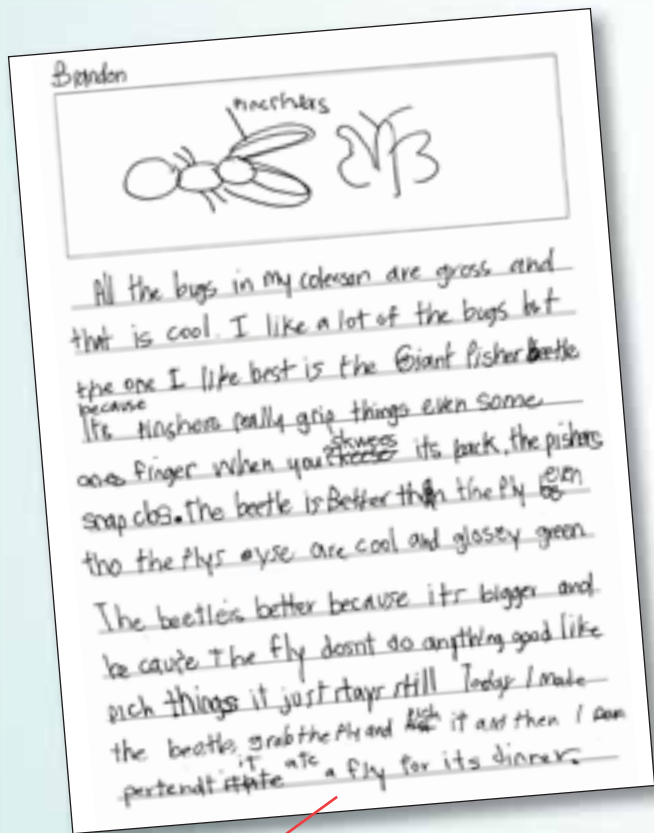 Brandon
pinchers
All the bugs in my colecson are gross and
that is cool. I like a lot of the bugs but
the one I like best is the Giant Pisher beetle
because
Its pinshers really grip things even some
ones finger when you skwees its back. the pishers
snap clos. The beetle is Better than the fly even
tho the flys eyse are cool and glossey green
The beetle is better because its bigger and
be cause the fly dosnt do anything good like
pich things it just stays still Today I made
the beatle grab the fly and pich it and then I
pertendt it ate a fly for its dinner.